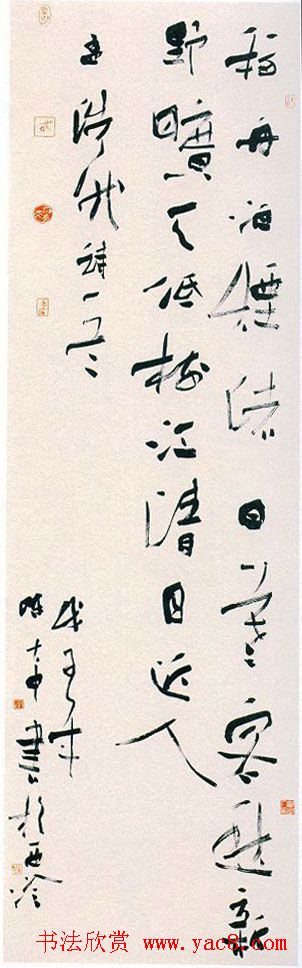 移舟泊煙渚日暮客愁新
野曠天低樹江清月近人
孟浩然詩一首
戊子
陳大中書於西泠
书法欣赏 www.yac8.com